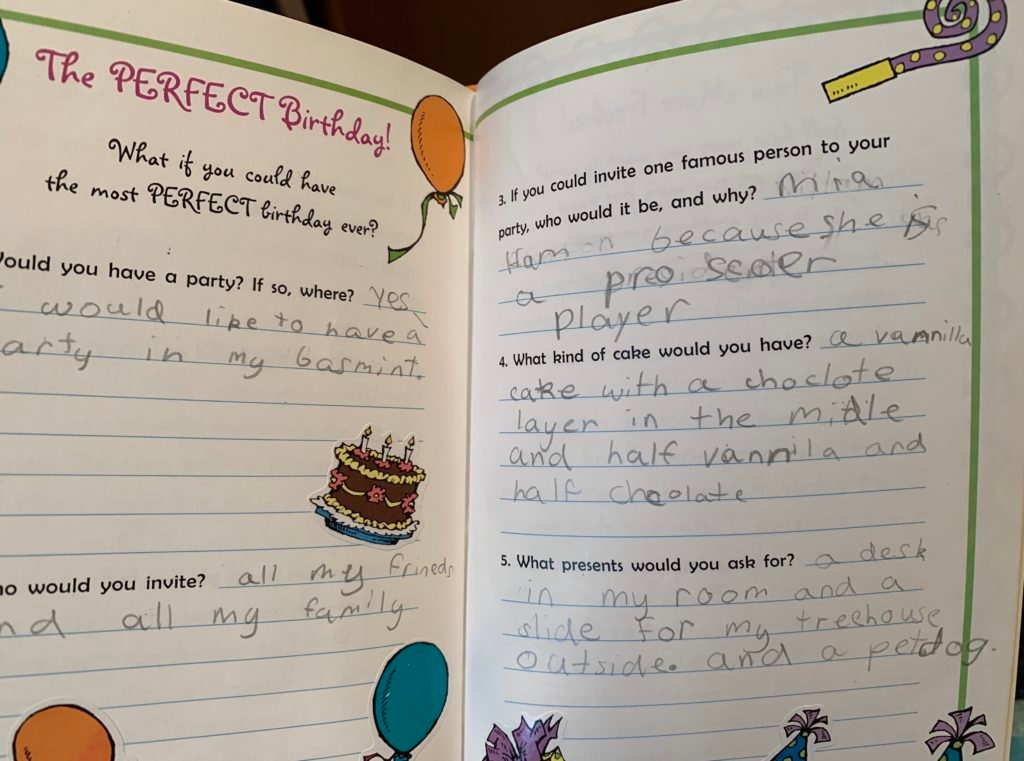 The PERFECT Birthday!
What if you could have
the most PERFECT birthday ever?
ould you have a party? If so, where? yes
would like to have a
arty in my basmint.
o would you invite? all my frineds
nd all my family
3. If you could invite one famous person to your
party, who would it be, and why? Mira
Ham on because she is
a pro scoler
player
4. What kind of cake would you have? a vamnilla
cake with a choclote
layer in the middle
and half vannila and
half cheolate
5. What presents would you ask for? a desk
in my room and a
slide for my treehouse
outside. and a pet dog.